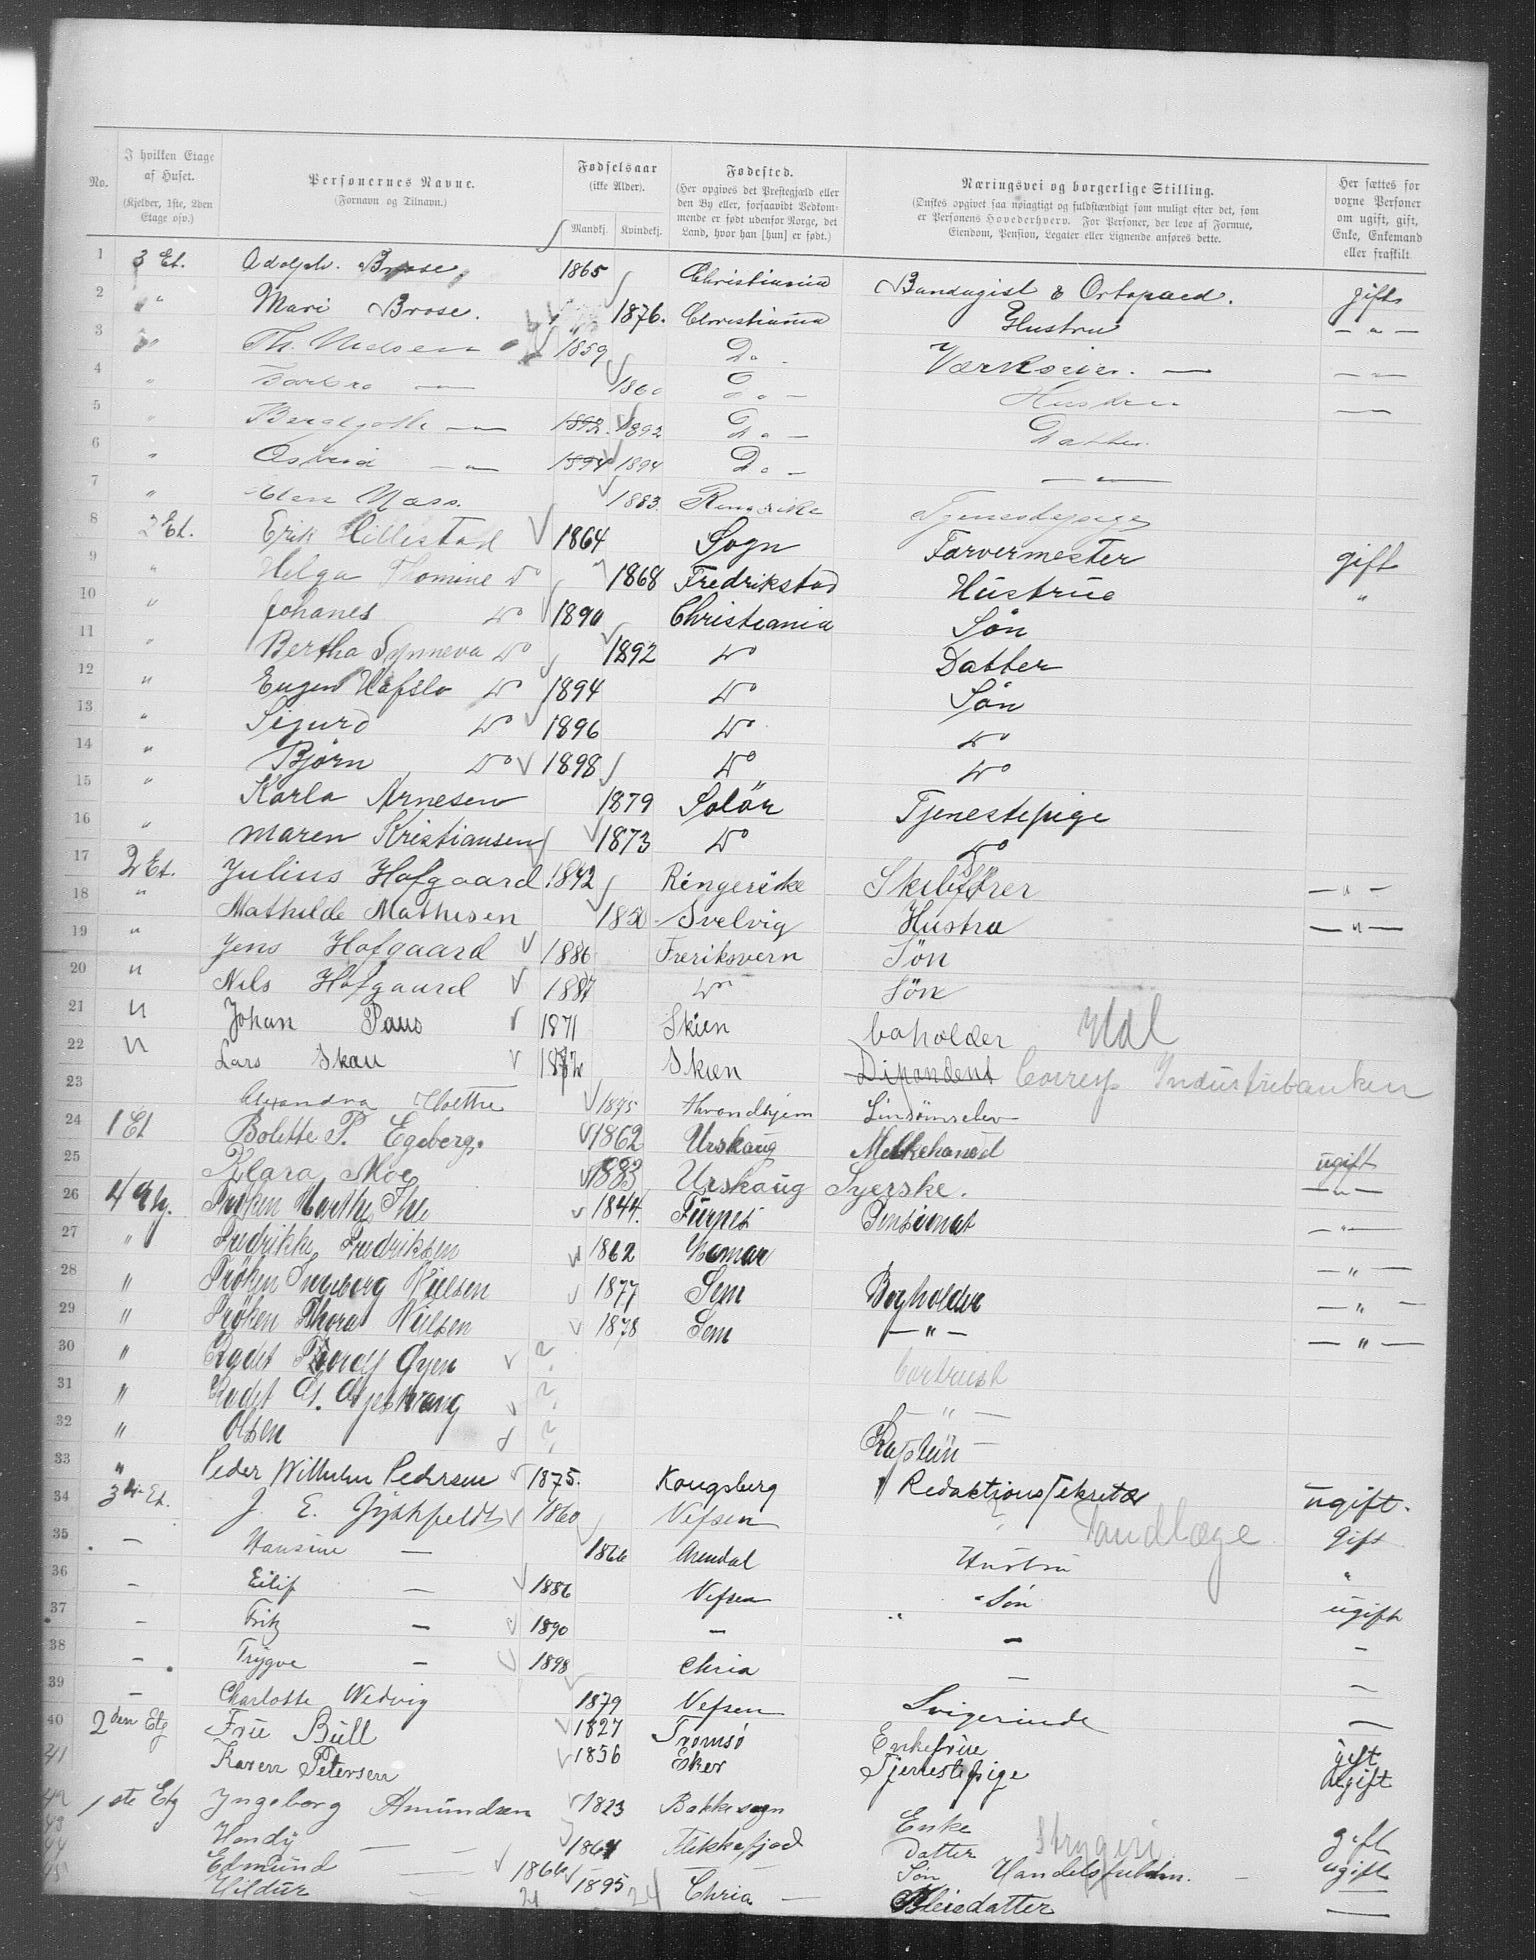 No.
I hvilken Etage af Huset. (Kjelder, 1ste, 2den Etage osv.)
Personernes Navne. (Fornavn og Tilnavn.)
Fødselsaar (ikke Alder). Mandkj. Kvindekj.
Fødested. (Her opgives det Prestegjæld eller den By eller, forsaavidt Vedkommende er født udenfor Norge, det Land, hvor han [hun] er født.)
Næringsvei og borgerlige Stilling. (Ønskes opgivet saa nøiagtig og fuldstændigt som muligt efter det, som er Personens Hovederhverv. For Personer, der leve af Formue, Eiendom, Pension, Legater eller Lignende anføres dette.
Her sættes for voxne Personer om ugift, gift, Enke, Enkemand eller fraskilt.
1 3 Et. Adolph. Brose, 1865 Christiania Bandagist & Ortopæd. gift
2 " Mari Brose. 1876. Christiania Hustru — " —
3 " Th. 1859 Do - Værkseier. — — " —
4 " — 1860 Do - Hustru — —
5 " — " — 1892 1892 Do - Datter
6 " — " — 1894 1894 Do - — " —
7 " Næss. 1883. Ringerike Tjenestepige
8 2 Et. Erik Hillestad 1864 Sogn Farvermester gift
9 " Helga Thomine Do 1868 Fredrikstad Hustrue "
10 " Johanes Do 1890 Christiania Søn
11 " Bertha Synneva Do 1892 Do Datter
12 " Eugen Hafslo Do 1894 Do Søn
13 " Sigurd Do 1896 Do Do
14 " Bjørn Do 1898 Do Do
15 " Karla Arnesen 1879 Solør Tjenestepige
16 " Maren Kristiansen 1873 Do Do
17 2 Et. Julius Hofgaard 1842 Ringerike Skibsfører — " —
18 " Mathilde Mathisen 1850 Svelvig Hustru — " —
19 " Jens Hofgaard 1886 Freriksvern Søn
20 " Nils Hofgaard 1887 Do Søn
21 " Johan Paus 1871 Skien boholder
22 " Lars Skau Skien Disponent Corresp. Industriebanken
23 Holthe 1875 throndhjem
24 1 Et Bolette P. Egeberg. 1862 Urskaug Melkehandel ugift
25 Klara Moe 1883 Urskaug Syerske. — " —
26 4 Etg. Frøken Marthe Ihle 1844. Furnes Pensionat — " —
27 " Fredrikke Fredriksen 1862 Hamar — " —
28 " Frøken Ingeborg Nielsen 1877 Sem Bogholder — " —
29 " Frøken Thora Nielsen 1878 Sem — " — — " —
30 " Kadet Øyen ?
31 " Kadet ? — " —
32 " Olsen ?
33 " Peder Wilhelm Pedersen 1875. Kongsberg Redaktionssekretær ugift.
34 3die Et. J. E. 1860 Vefsen Tandlæge gift
35 — Hansine — 1866 Arendal Hustru "
36 — Eilif — 1886 Vefsen Søn ugift
37 — Fritz — 1890 — — —
38 — Trygve — 1898 Chria — —
39 — Charlotte Wedvig 1879 Vefsen Svigerinde —
40 2den Etg Frue Bull 1827 Tromsø Enkefrue gift
41 Karen Petersen 1856 Eker Tjenestepige ugift
42 1ste Etg Ingeborg Amundsen 1823 Bakke sogn Enke gift
43 — 1864 Flekkefjord Datter Strygeri ugift
44 Edmund — 1866 — Søn —
45 Hildur — 1895 Chria — Pleiedatter —
21 24